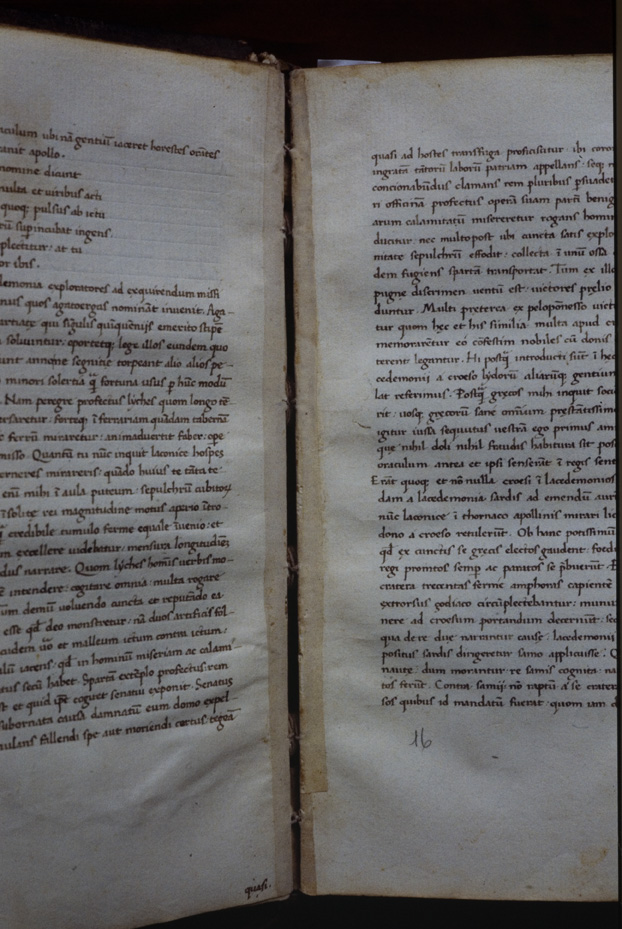 aculum ubi nã gentiũ iaceret horestes oñtes
anit apollo.
nomine dicunt
multa et viribus acti
quoqʒ pulsus ab ictu
rũ sup incubat ingens.
plectitur: at tu
or ibis.
demonia exploratores ad exquirendum missi
nus quos agatoergus nominãt invenit. Aga-
qui sigulis quiquenijs emerito stipẽ
soluuntur: oportetqʒ lege illos eundem quo
unt annoqne segnitie torpeant alio alios pe-
minori solertia q̃ fortuna usus p hũc modũ
Nam peregre profectus lyches quom longo tẽ-
rsaretur: forteqʒ ĩ ferrariam quãdam tabernã
ferrũ miraretur: animaduertit faber: ope
misso. Quantũ tu nũc inquit laconice hospes
erneres mirareris: quãdo huius te tãta te-
enĩ mihi ĩ aula puteum: sepulchrũ cubitoꝝ
ĩsolite rei magnitudine motus aperio ũtro-
credibile tumulo ferme equale ĩvenio: et
m excellere uidebatur: mensura longitudiẽ
dus narrare. Quom lyches homis uerbis mo-
intendere: cogitare omnia: multa rogare
ũm demũ uoluendo cuncta et reputãdo ea
esse qd deo monstretur: nã duos artificis fol-
cudem uo et malleum ictum contra ictum:
alũ iacens: qd in hominũ miseriam ac calami-
tus secũ habet. Spartã extẽplo profectus rem
st et quid ipse cogitet senatui exponit. Senatus
subornata causa damnatũ eum domo expel-
aulans fallendi spe aut moriendi certus tegeã
quasi.
quasi ad hostes transfuga proficisitur: ibi coro
ingratã tãtorũ laborũ patriam appellans: seqʒ
concionabũdus clamans rem pluribus psuadet
ri officinã profectus operã suam parti benig
arum calamitatũ misereretur rogans homin
ducitur: nec multo post ubi cuncta satis explo
nitate sepulchrũ effodit: collecta ĩ unũ ossa
dem fugiens spartã transportat. Tũm ex ille
pugne discrimen uentũ est: uictores prelio
duntur. Multi preterea ex peloponẽsso uict
tur quom hec et his similia: multa apud c
memorarẽtur eo cõfestim nobiles cũ donis
terent legantur. Hi postq̃ introducti sũt: ĩ hec
cedemonii a croeso lydorũ aliarũqʒ gentium
lat referimus. Postq̃ grecos mihi inquit soci
rit: uosqʒ grecorũ sane omnium prestãtissim
igitur iussa sequutus uestrã ego primus am
que nihil doli nihil fraudis habitura sit pos
oraculum antea et ipsi senserãt ĩ regis sent
Erãt quoqʒ et nõ nulla croesi ĩ lacedemonios
dam a lacedemonia sardis ad emendũ auri
nũc laconice ĩ thornaco apollinis mirati lic
dono a croeso retulerũt. Ob hanc potissimũ
qd ex cunctis se grecis electos gaudent: foedu
regi promtos semp ac paratos se phuerũt.
cratera trecentas ferme amphoras capientẽ
exrorsus zodiaco circũplectebantur: munu
nere ad croesum portandum decernũt: sed
qua de re due narrantur cause: lacedemonii
positus sardis dirigeretur samo applicuisse:
naute dum morantur: re samis cognita: na
tos ferũt. Contra samii nõ raptũ a se crater
sos quibus id mandatũ fuerat: quom iam d
16